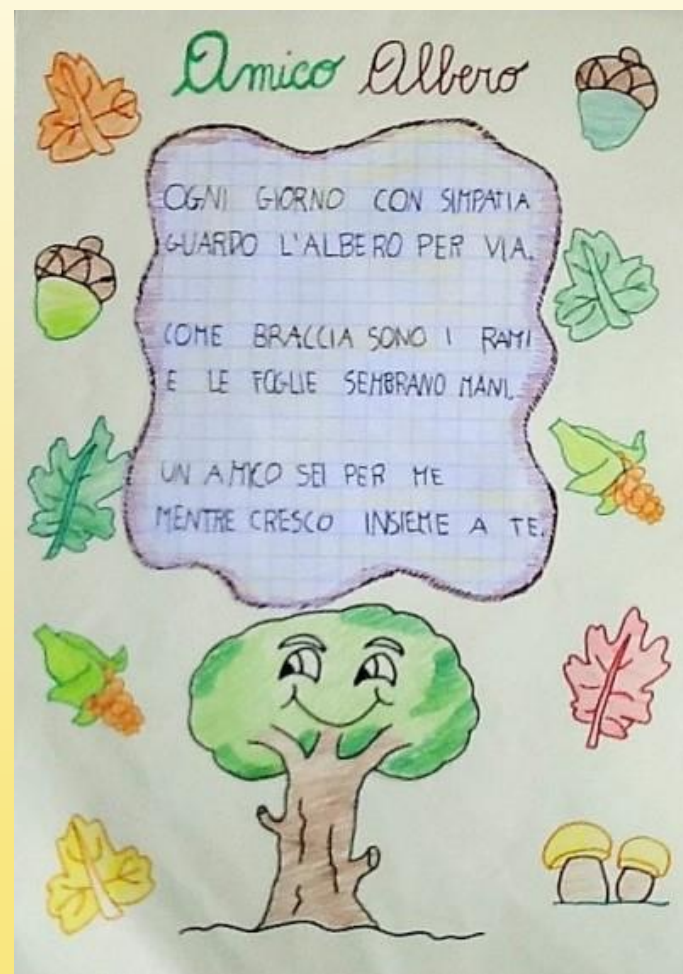 Amico Albero
OGNI GIORNO CON SIMPATIA
GUARDO L'ALBERO PER VIA.
COME BRACCIA SONO I RAMI
E LE FOGLIE SEMBRANO MANI.
UN AMICO SEI PER ME
MENTRE CRESCO INSIEME A TE.